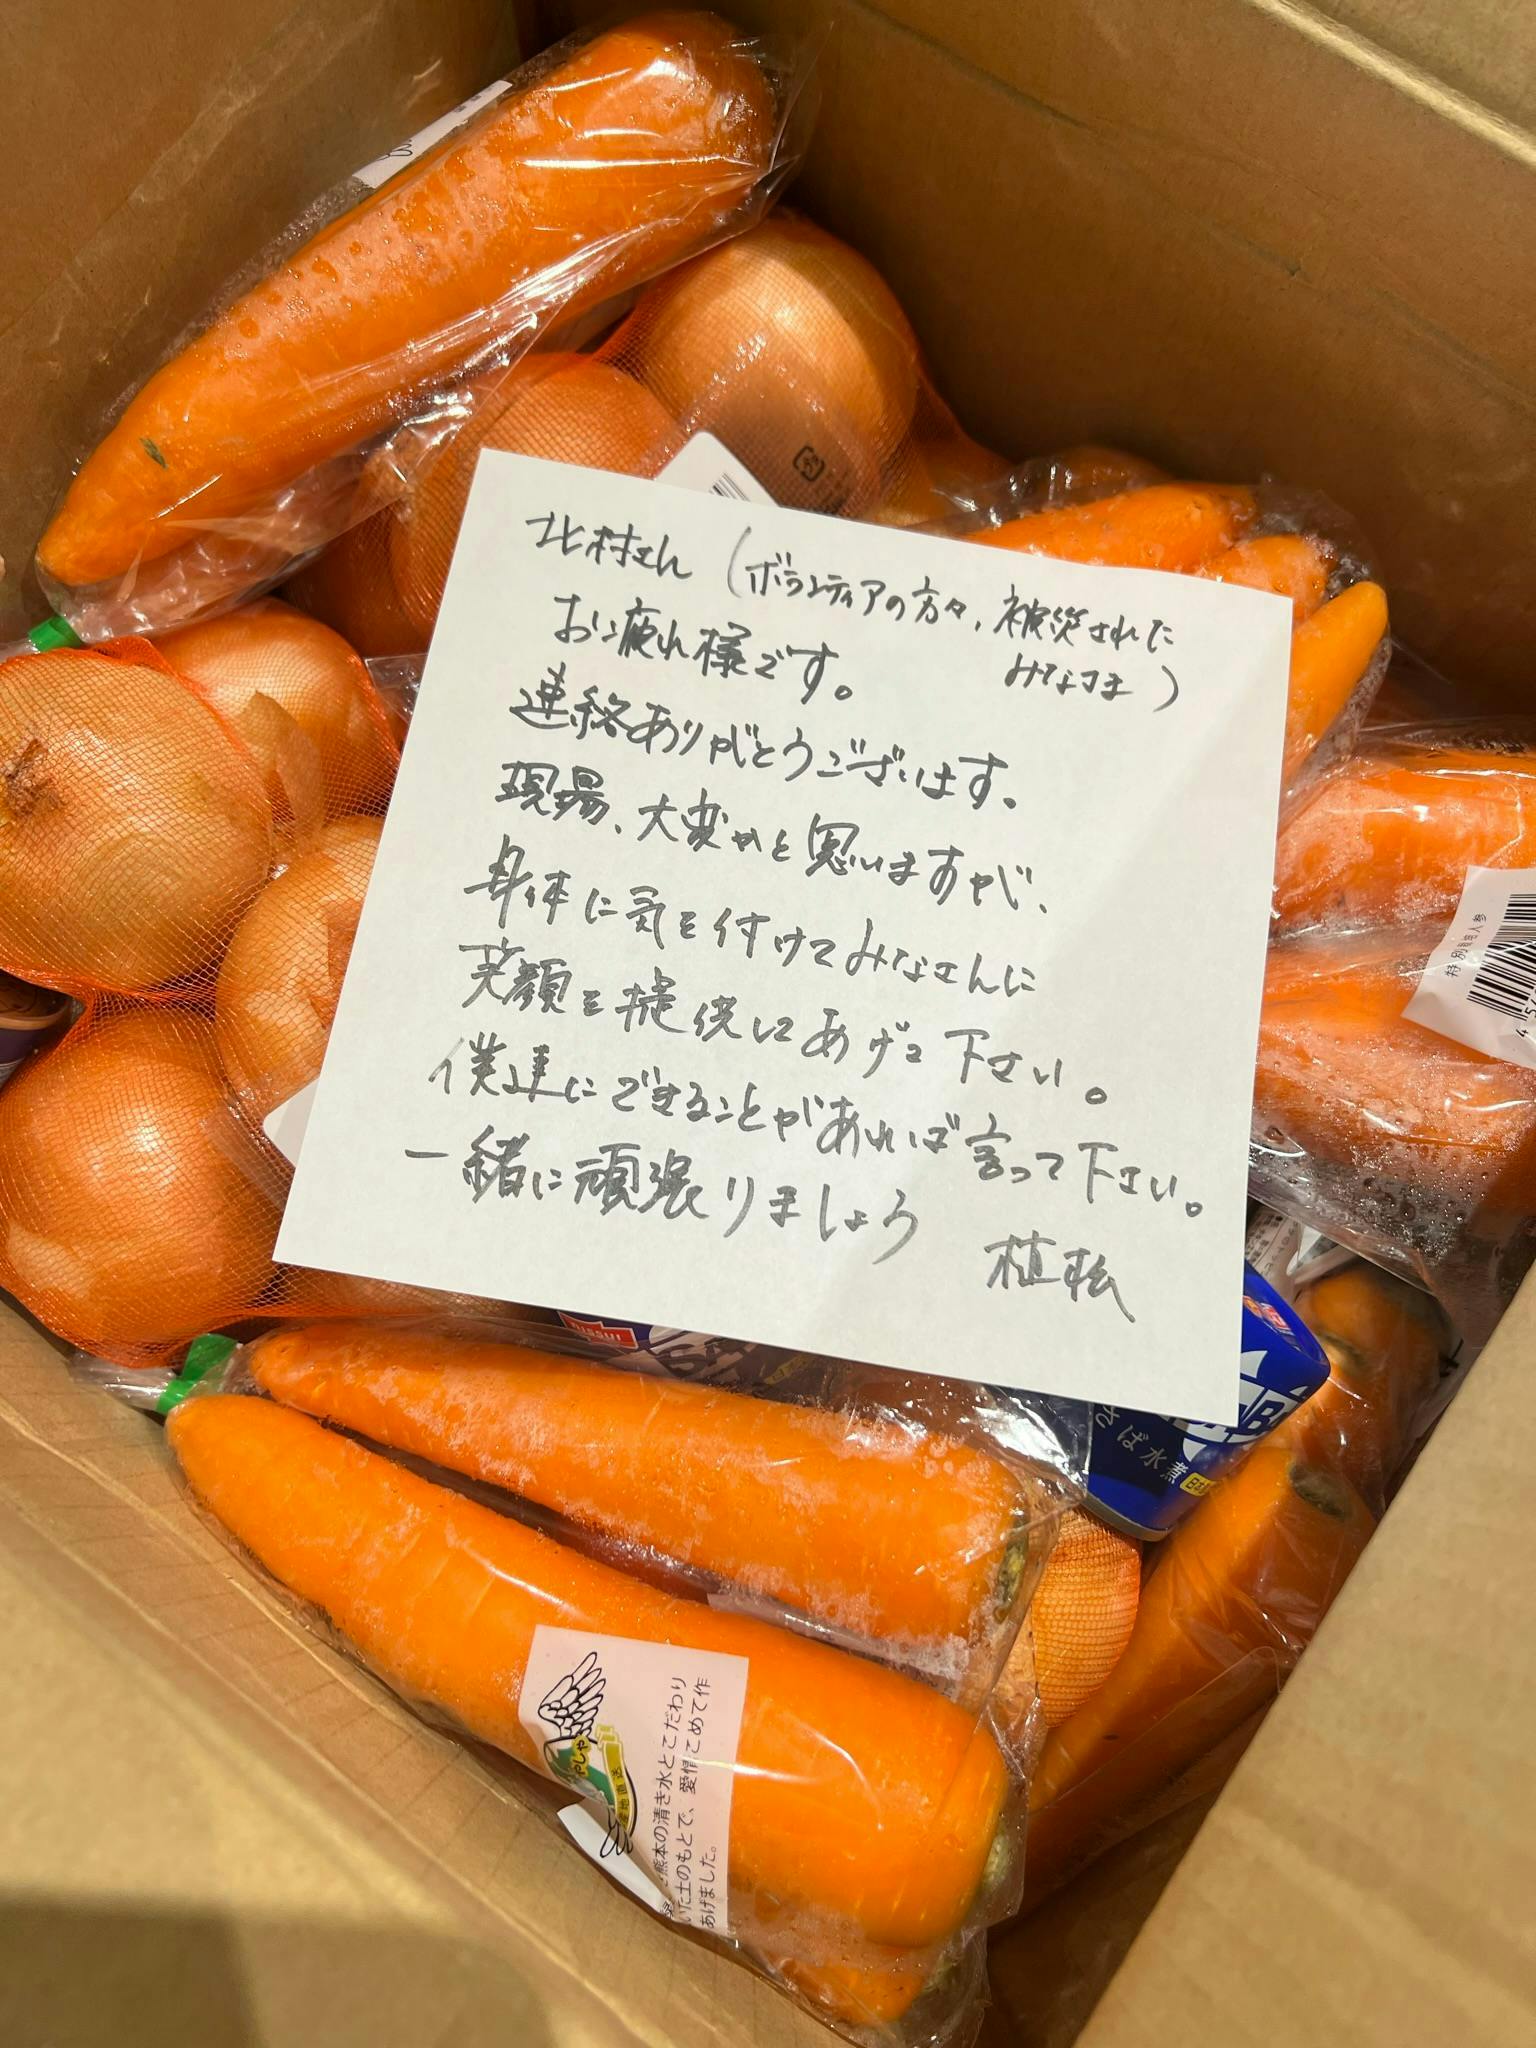 北村さん(ボランティアの方々、被災された
みなさま)
お疲れ様です。
連絡ありがとうございます。
現場、大変かと思いますが、
身体に気を付けてみなさんに
笑顔を提供してあげて下さい。
僕達にできることがあれば言って下さい。
一緒に頑張りましょう
植松
特別栽培人参
NISSUI
さば水煮
産地直送
熊本の清き水とこだわり
いた土のもとで、愛情こめて作
あげました。